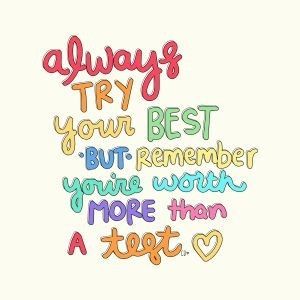 always
TRY
your BEST
•BUT• remember
you're worth
MORE than
A test